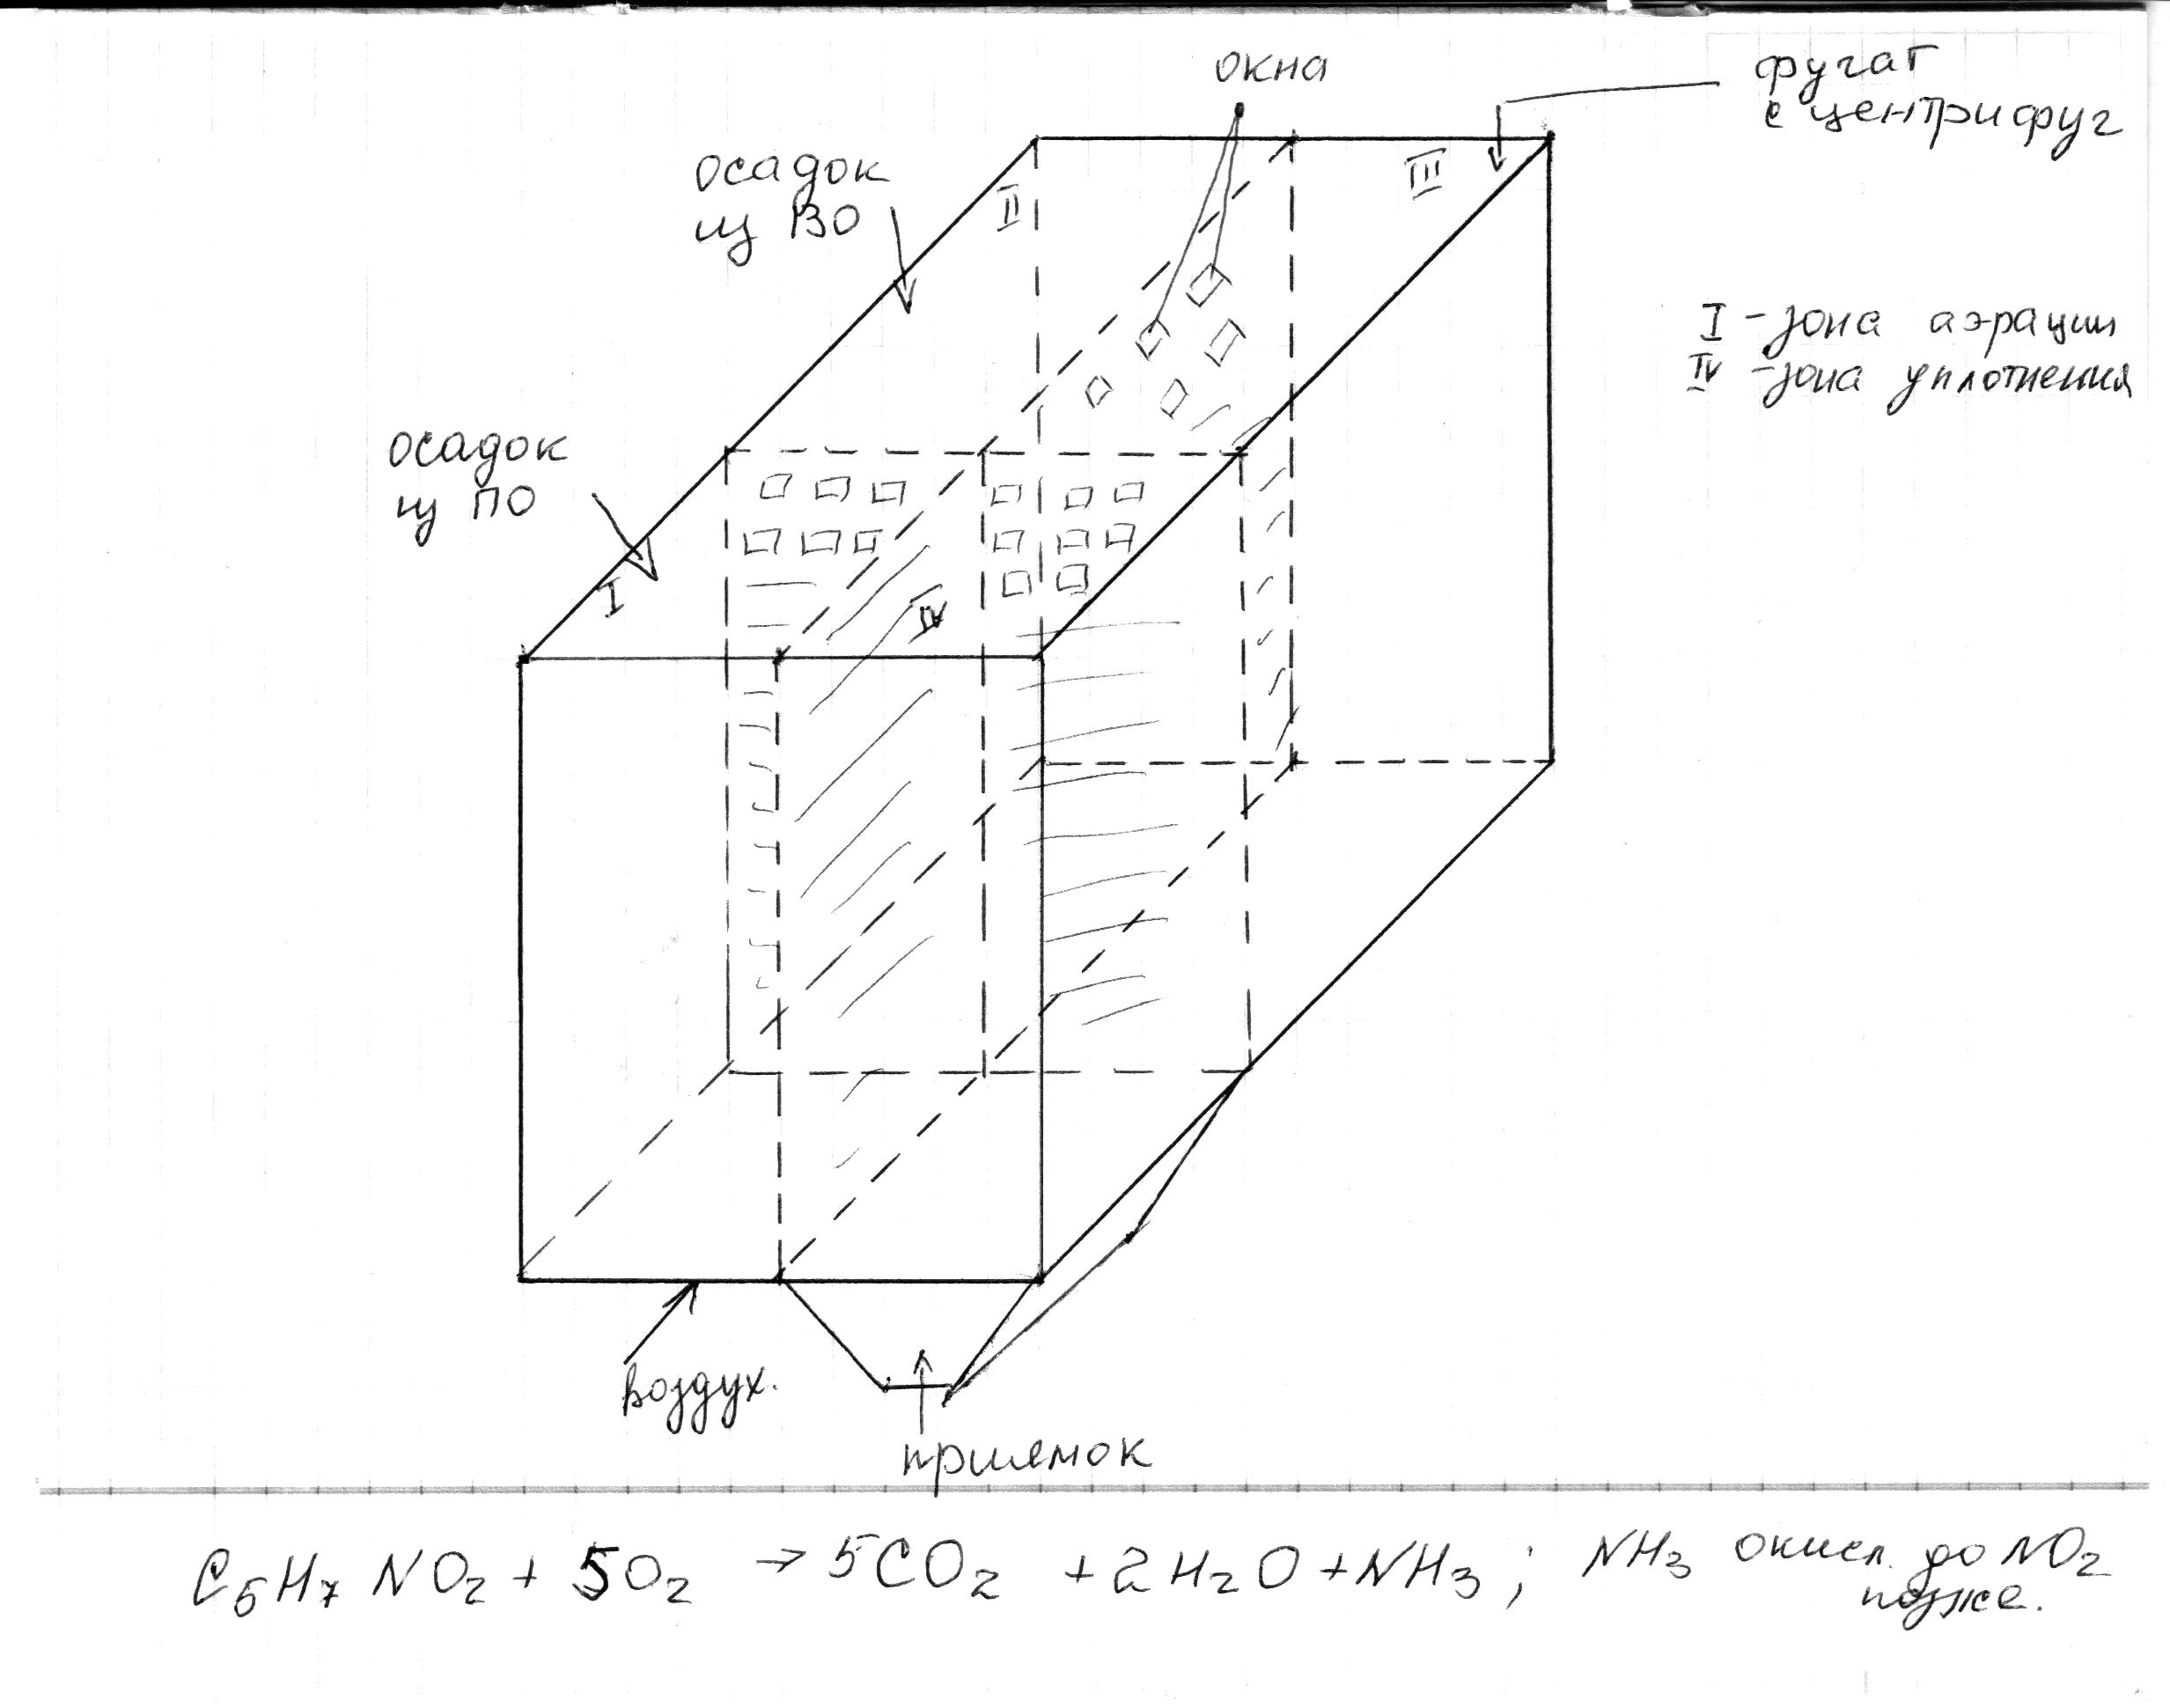 окна
фугат
с центрифуг
осадок
из ВО
II
III
I - зона аэрации
IV - зона уплотнения
осадок
из ПО
I
IV
воздух.
приямок
C5H7NO2 + 5O2 → 5CO2 + 2H2O + NH3; NH3 окисл. до NO2
позже.